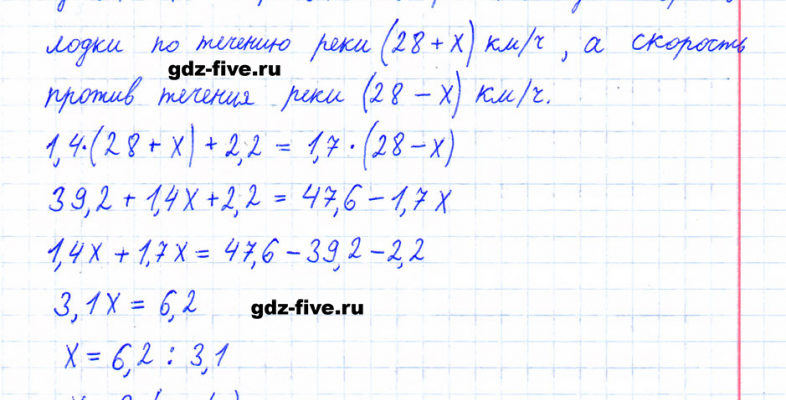 лодки по течению реки (28 + x) км/ч, а скорость
gdz-five.ru
против течения реки (28 - x) км/ч.
1,4·(28 + x) + 2,2 = 1,7·(28 - x)
39,2 + 1,4x + 2,2 = 47,6 - 1,7x
1,4x + 1,7x = 47,6 - 39,2 - 2,2
3,1x = 6,2
gdz-five.ru
x = 6,2 : 3,1